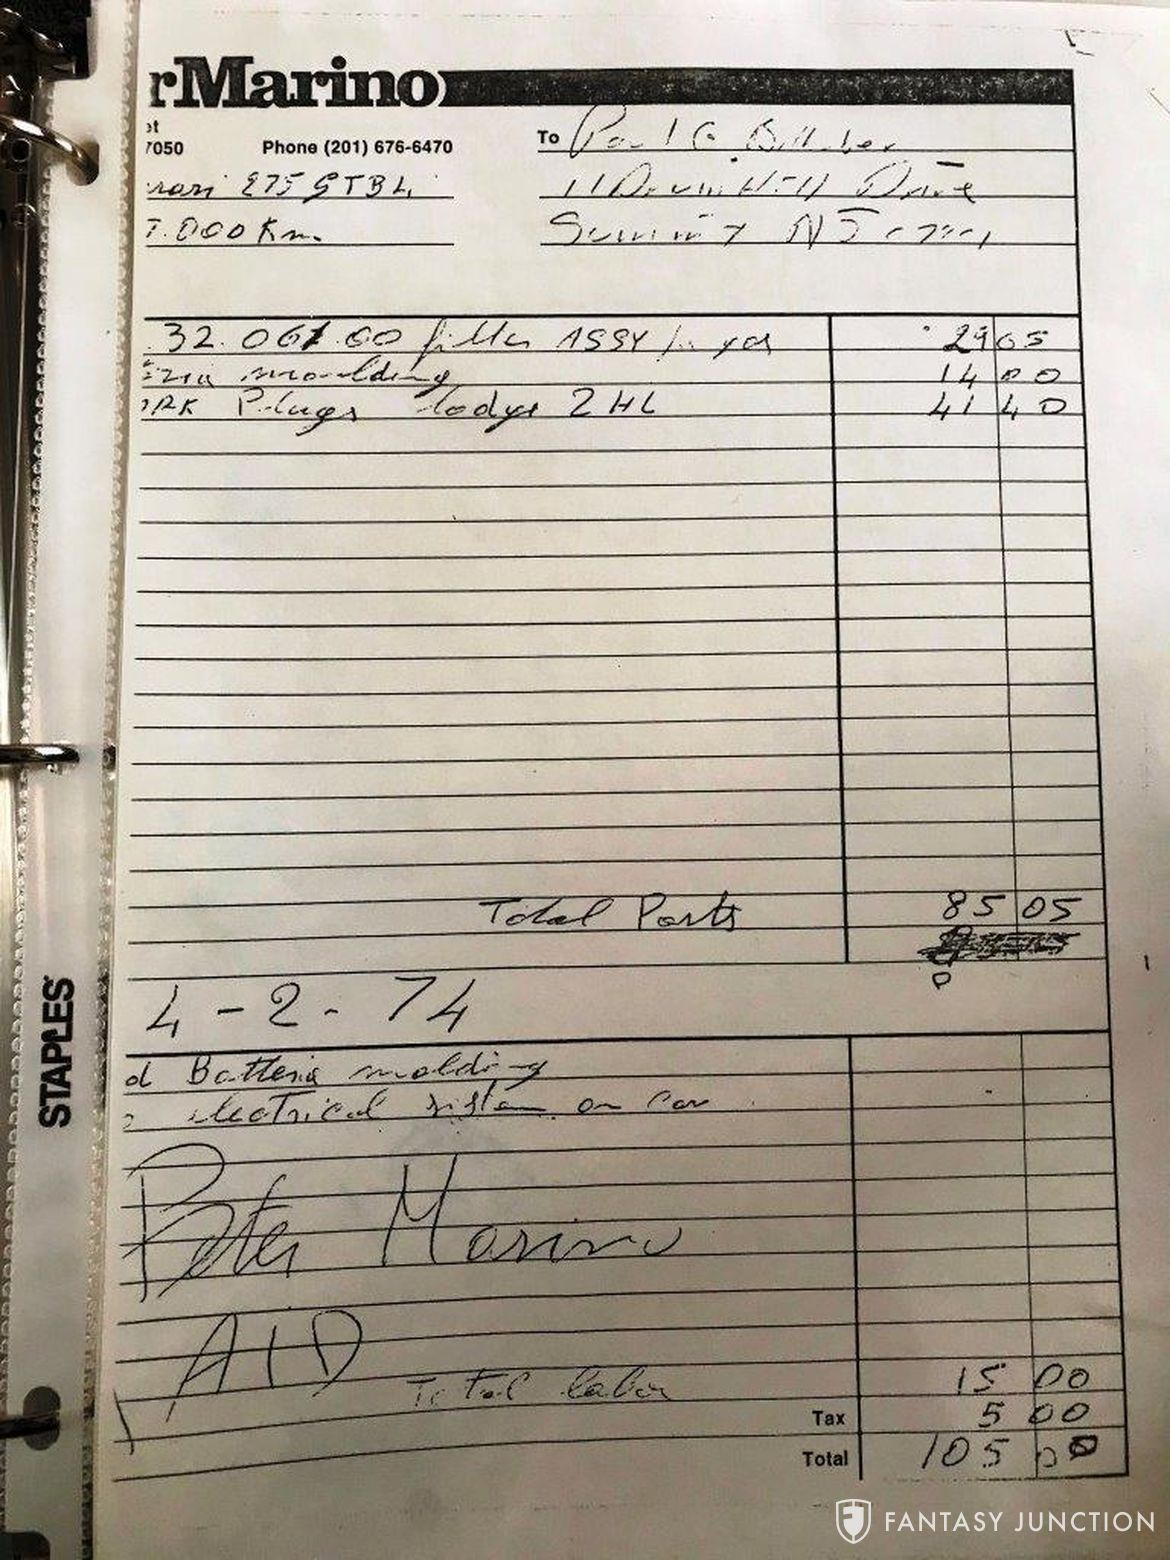 rMarino
et
7050 Phone (201) 676-6470 To Paul G
rari 275 GTB4 11 Drum Hill Drive
7.000 Km. Summit NJ
32.061.60 filter ASSY 29 05
moulding 14 00
ARK Plugs lodge 2HL 41 40
Total Parts 85 05
4-2-74
d Batteria molding
electrical sistem on car
Peter Marino
AID
Total labor 15 00
Tax 5 00
Total 105 00
STAPLES
FANTASY JUNCTION